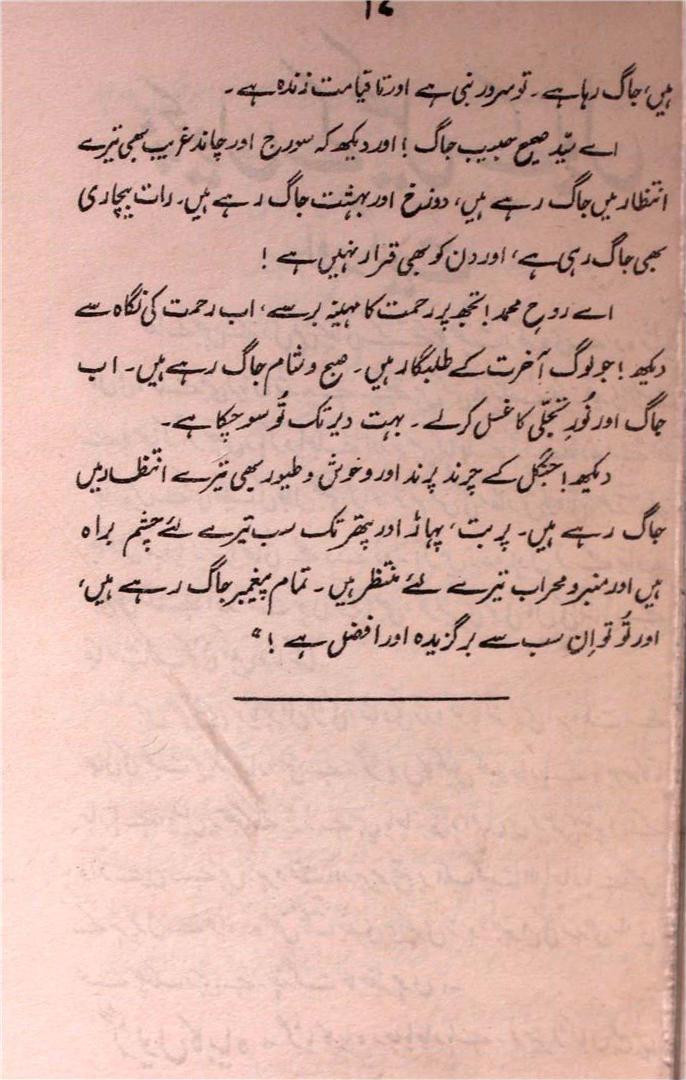 ہیں، جاگ رہا ہے۔ تو سرور نبی ہے اور تا قیامت زندہ ہے۔
اے سیّد صبیح حبیب جاگ! اور دیکھ کہ سورج اور چاند غریب بھی تیرے
انتظار میں جاگ رہے ہیں، دوزخ اور بہشت جاگ رہے ہیں۔ رات بیچاری
بھی جاگ رہی ہے، اور دن کو بھی قرار نہیں ہے!
اے روحِ محمد! تجھ پر رحمت کا مہینہ برسے، اب رحمت کی نگاہ سے
دیکھ! جو لوگ آخرت کے طلبگار ہیں۔ صبح و شام جاگ رہے ہیں۔ اب
جاگ اور نُورِ تجلّی کا غسل کر لے۔ بہت دیر تک تُو سو چکا ہے۔
دیکھ! جنگل کے چرند پرند اور وحوش و طیور بھی تیرے انتظار میں
جاگ رہے ہیں۔ پربت، پہاڑ اور پتھر تک سب تیرے لئے چشم براہ
ہیں اور منبر و محراب تیرے لئے منتظر ہیں۔ تمام پیغمبر جاگ رہے ہیں،
اور تُو تو اِن سب سے برگزیدہ اور افضل ہے!"